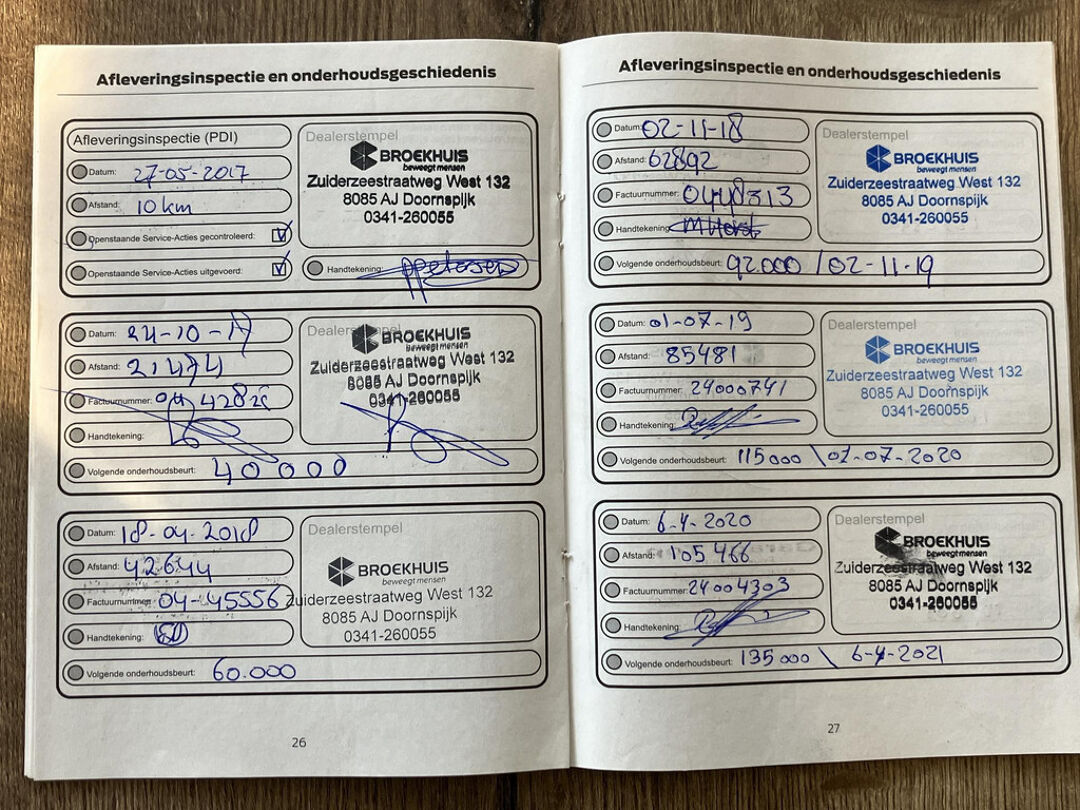 Afleveringsinspectie en onderhoudsgeschiedenis
Afleveringsinspectie (PDI)
Datum: 27-05-2017
Afstand: 10 km
Openstaande Service-Acties gecontroleerd:
Openstaande Service-Acties uitgevoerd:
Dealerstempel
BROEKHUIS
beweegt mensen
Zuiderzeestraatweg West 132
8085 AJ Doornspijk
0341-260055
Handtekening:
Datum: 24-10-17
Afstand: 21474
Factuurnummer:
Handtekening:
Volgende onderhoudsbeurt: 40000
Dealerstempel
BROEKHUIS
beweegt mensen
Zuiderzeestraatweg West 132
8085 AJ Doornspijk
0341-260055
Datum: 18-04-2018
Afstand: 42644
Factuurnummer: 04-45556
Handtekening:
Volgende onderhoudsbeurt: 60.000
Dealerstempel
BROEKHUIS
beweegt mensen
Zuiderzeestraatweg West 132
8085 AJ Doornspijk
0341-260055
26
Afleveringsinspectie en onderhoudsgeschiedenis
Datum: 02-11-18
Afstand: 62892
Factuurnummer: 0448313
Handtekening:
Volgende onderhoudsbeurt: 92.000 / 02-11-19
Dealerstempel
BROEKHUIS
beweegt mensen
Zuiderzeestraatweg West 132
8085 AJ Doornspijk
0341-260055
Datum: 01-07-19
Afstand: 85481
Factuurnummer: 24000741
Handtekening:
Volgende onderhoudsbeurt: 115000 \ 01-07-2020
Dealerstempel
BROEKHUIS
beweegt mensen
Zuiderzeestraatweg West 132
8085 AJ Doornspijk
0341-260055
Datum: 6-4-2020
Afstand: 105466
Factuurnummer: 24004303
Handtekening:
Volgende onderhoudsbeurt: 135000 \ 6-4-2021
Dealerstempel
BROEKHUIS
beweegt mensen
Zuiderzeestraatweg West 132
8085 AJ Doornspijk
0341-260055
27